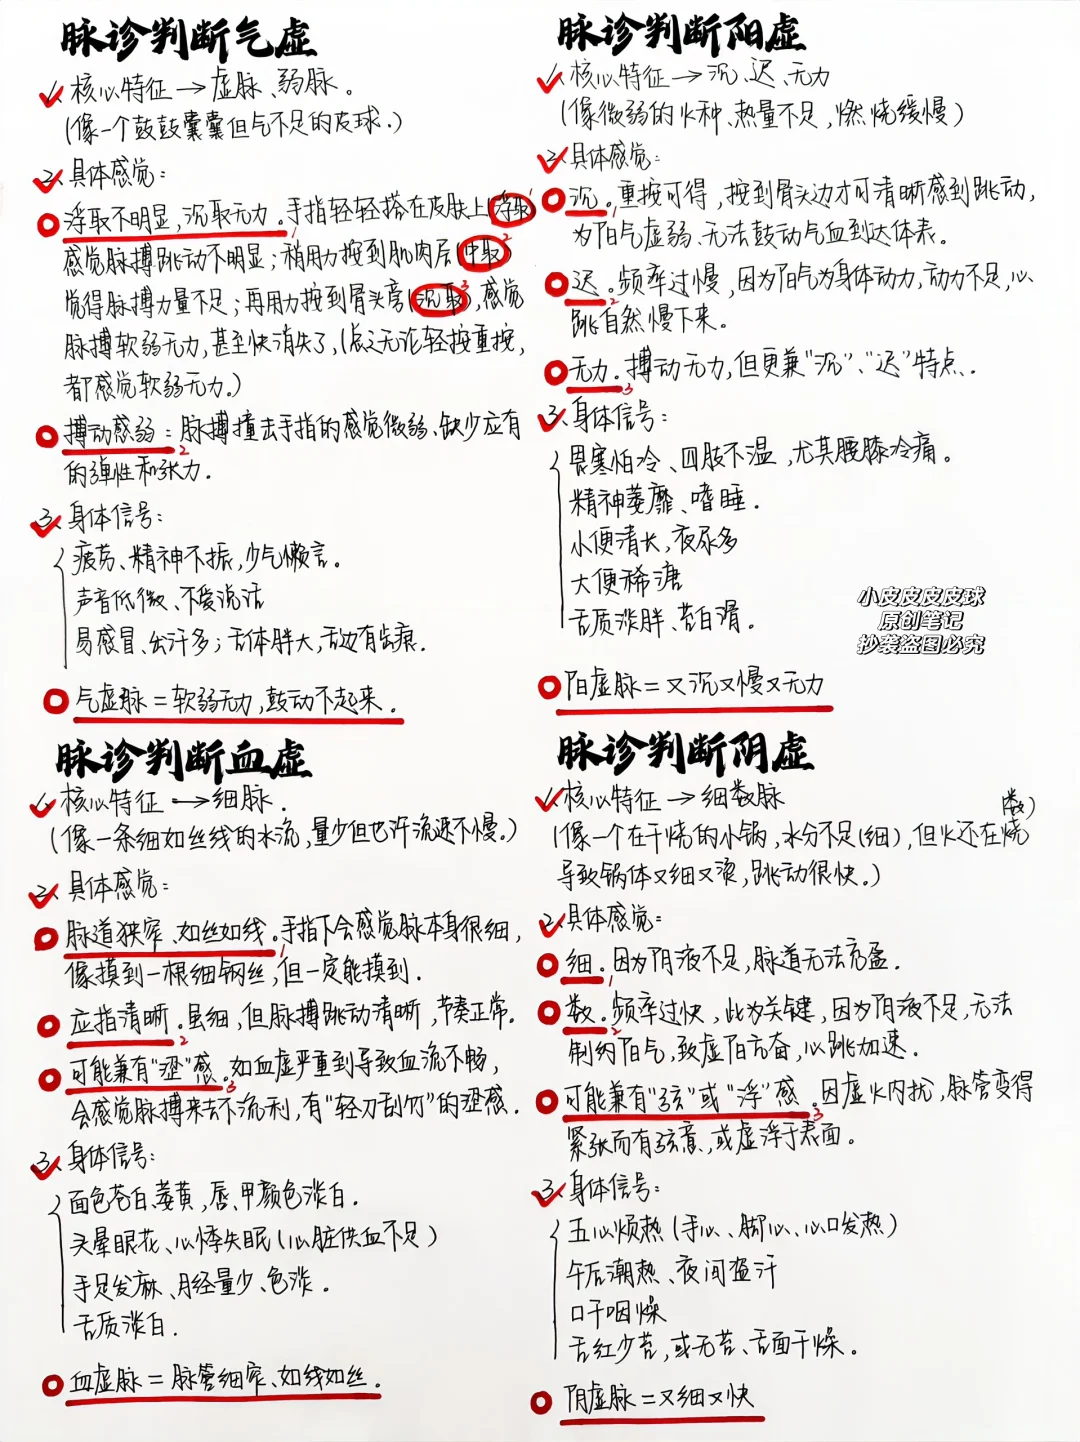 脉诊判断气虚
1、核心特征→虚脉、弱脉。
(像一个鼓鼓囊囊但气不足的皮球.)
2、具体感觉:
浮取不明显,沉取无力。手指轻轻搭在皮肤上(浮取)1
感觉脉搏跳动不明显;稍用力按到肌肉层(中取)2
觉得脉搏力量不足;再用力按到骨头旁(沉取)3,感觉
脉搏软弱无力,甚至快消失了,(总之无论轻按重按,
都感觉软弱无力.)
搏动感弱:2脉搏撞击手指的感觉微弱、缺少应有
的弹性和张力.
3、身体信号:
疲劳、精神不振,少气懒言。
声音低微、不爱说话
易感冒、出汗多;舌体胖大,舌边有齿痕.
气虚脉=软弱无力,鼓动不起来.
脉诊判断阳虚
1、核心特征→沉、迟、无力
(像微弱的火种、热量不足,燃烧缓慢)
2、具体感觉:
沉。1重按可得,按到骨头边才可清晰感到跳动,
为阳气虚弱、无法鼓动气血到达体表。
迟。2频率过慢,因为阳气为身体动力,动力不足,心
跳自然慢下来。
无力.3搏动无力,但更兼"沉"、"迟"特点.
3、身体信号:
畏寒怕冷、四肢不温,尤其腰膝冷痛。
精神萎靡、嗜睡.
小便清长,夜尿多
大便稀溏
舌质淡胖、苔白滑.
小皮皮皮皮球
原创笔记
抄袭盗图必究
阳虚脉=又沉又慢又无力
脉诊判断血虚
1、核心特征→细脉.
(像一条细如丝线的水流,量少但也许流速不慢。)
2、具体感觉:
脉道狭窄、如丝如线。1手指下会感觉脉本身很细,
像摸到一根细钢丝,但一定能摸到.
应指清晰.2虽细,但脉搏跳动清晰,节奏正常.
可能兼有"涩"感.3如血虚严重到导致血流不畅,
会感觉脉搏来去不流利,有"轻刀刮竹"的涩感.
3、身体信号:
面色苍白、萎黄,唇、甲颜色淡白.
头晕眼花、心悸失眠(心脏供血不足)
手足发麻、月经量少、色淡.
舌质淡白.
血虚脉=脉管细窄、如线如丝.
脉诊判断阴虚
1、核心特征→细数脉
(像一个在干烧的小锅,水分不足(细),但火还在烧(数)
导致锅体又细又烫,跳动很快。)
2、具体感觉:
细.1因为阴液不足,脉道无法充盈.
数.2频率过快,此为关键,因为阴液不足,无法
制约阳气,致虚阳亢奋,心跳加速.
可能兼有"弦"或"浮"感.3因虚火内扰,脉管变得
紧张而有弦意,或虚浮于表面。
3、身体信号:
五心烦热(手心、脚心、心口发热)
午后潮热、夜间盗汗
口干咽燥
舌红少苔,或无苔、舌面干燥。
阴虚脉=又细又快